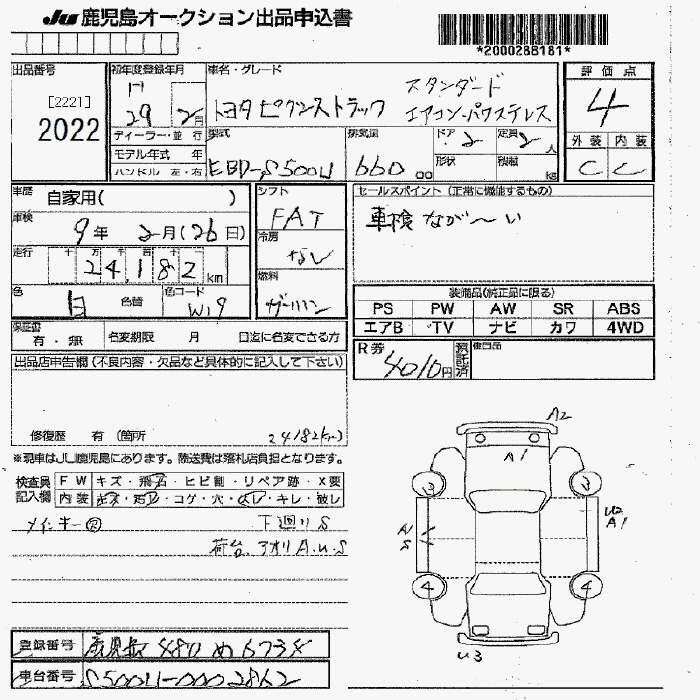 JU 鹿児島オークション出品申込書
*2000288181*
出品番号
[2221]
2022
初年度登録年月
H
29 年 2 月
ディーラー・並 行
モデル年式 年
ハンドル 左・右
車名・グレード
トヨタ ピクシストラック
スタンダード
エアコン・パワステレス
型式
EBD-S500U
排気量
660 cc
ドア 2
形状
定員 2 人
積載 kg
評 価 点
4
外 装 内 装
C C
車歴 自家用( )
車検 9 年 2 月(26 日)
走行 十 万 千 百 十 一
24,182 km
色 白 色替
色コード W19
シフト
FAT
冷房
なし
燃料
ガソリン
セールスポイント (正常に機能するもの)
車検 なが~い
装備品(純正品に限る)
PS PW AW SR ABS
エアB TV ナビ カワ 4WD
保証書 有・無 名変期限 月 日迄に名変できる方
R券 4010円 預託済
後日品
出品店申告欄(不良内容・欠品など具体的に記入して下さい)
修復歴 有(箇所 24182km)
※現車はJU鹿児島にあります。陸送費は落札店負担となります。
検査員 記入欄
FW キズ・飛石・ヒビ割・リペア跡・X要
内装 キズ・汚レ・コゲ・穴・スレ・キレ・破レ
メインキー
下廻りS
荷台、アオリA.U.S
A2
A1
3
3
A
S
U2
A1
4
4
U3
登録番号 鹿児島 480 め 6734
車台番号 S500U-0002862